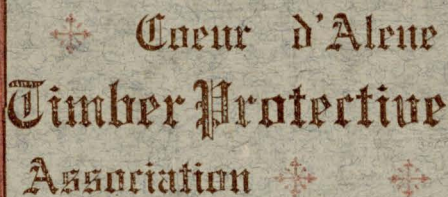 Coeur d'Alene
Timber Protective
Association